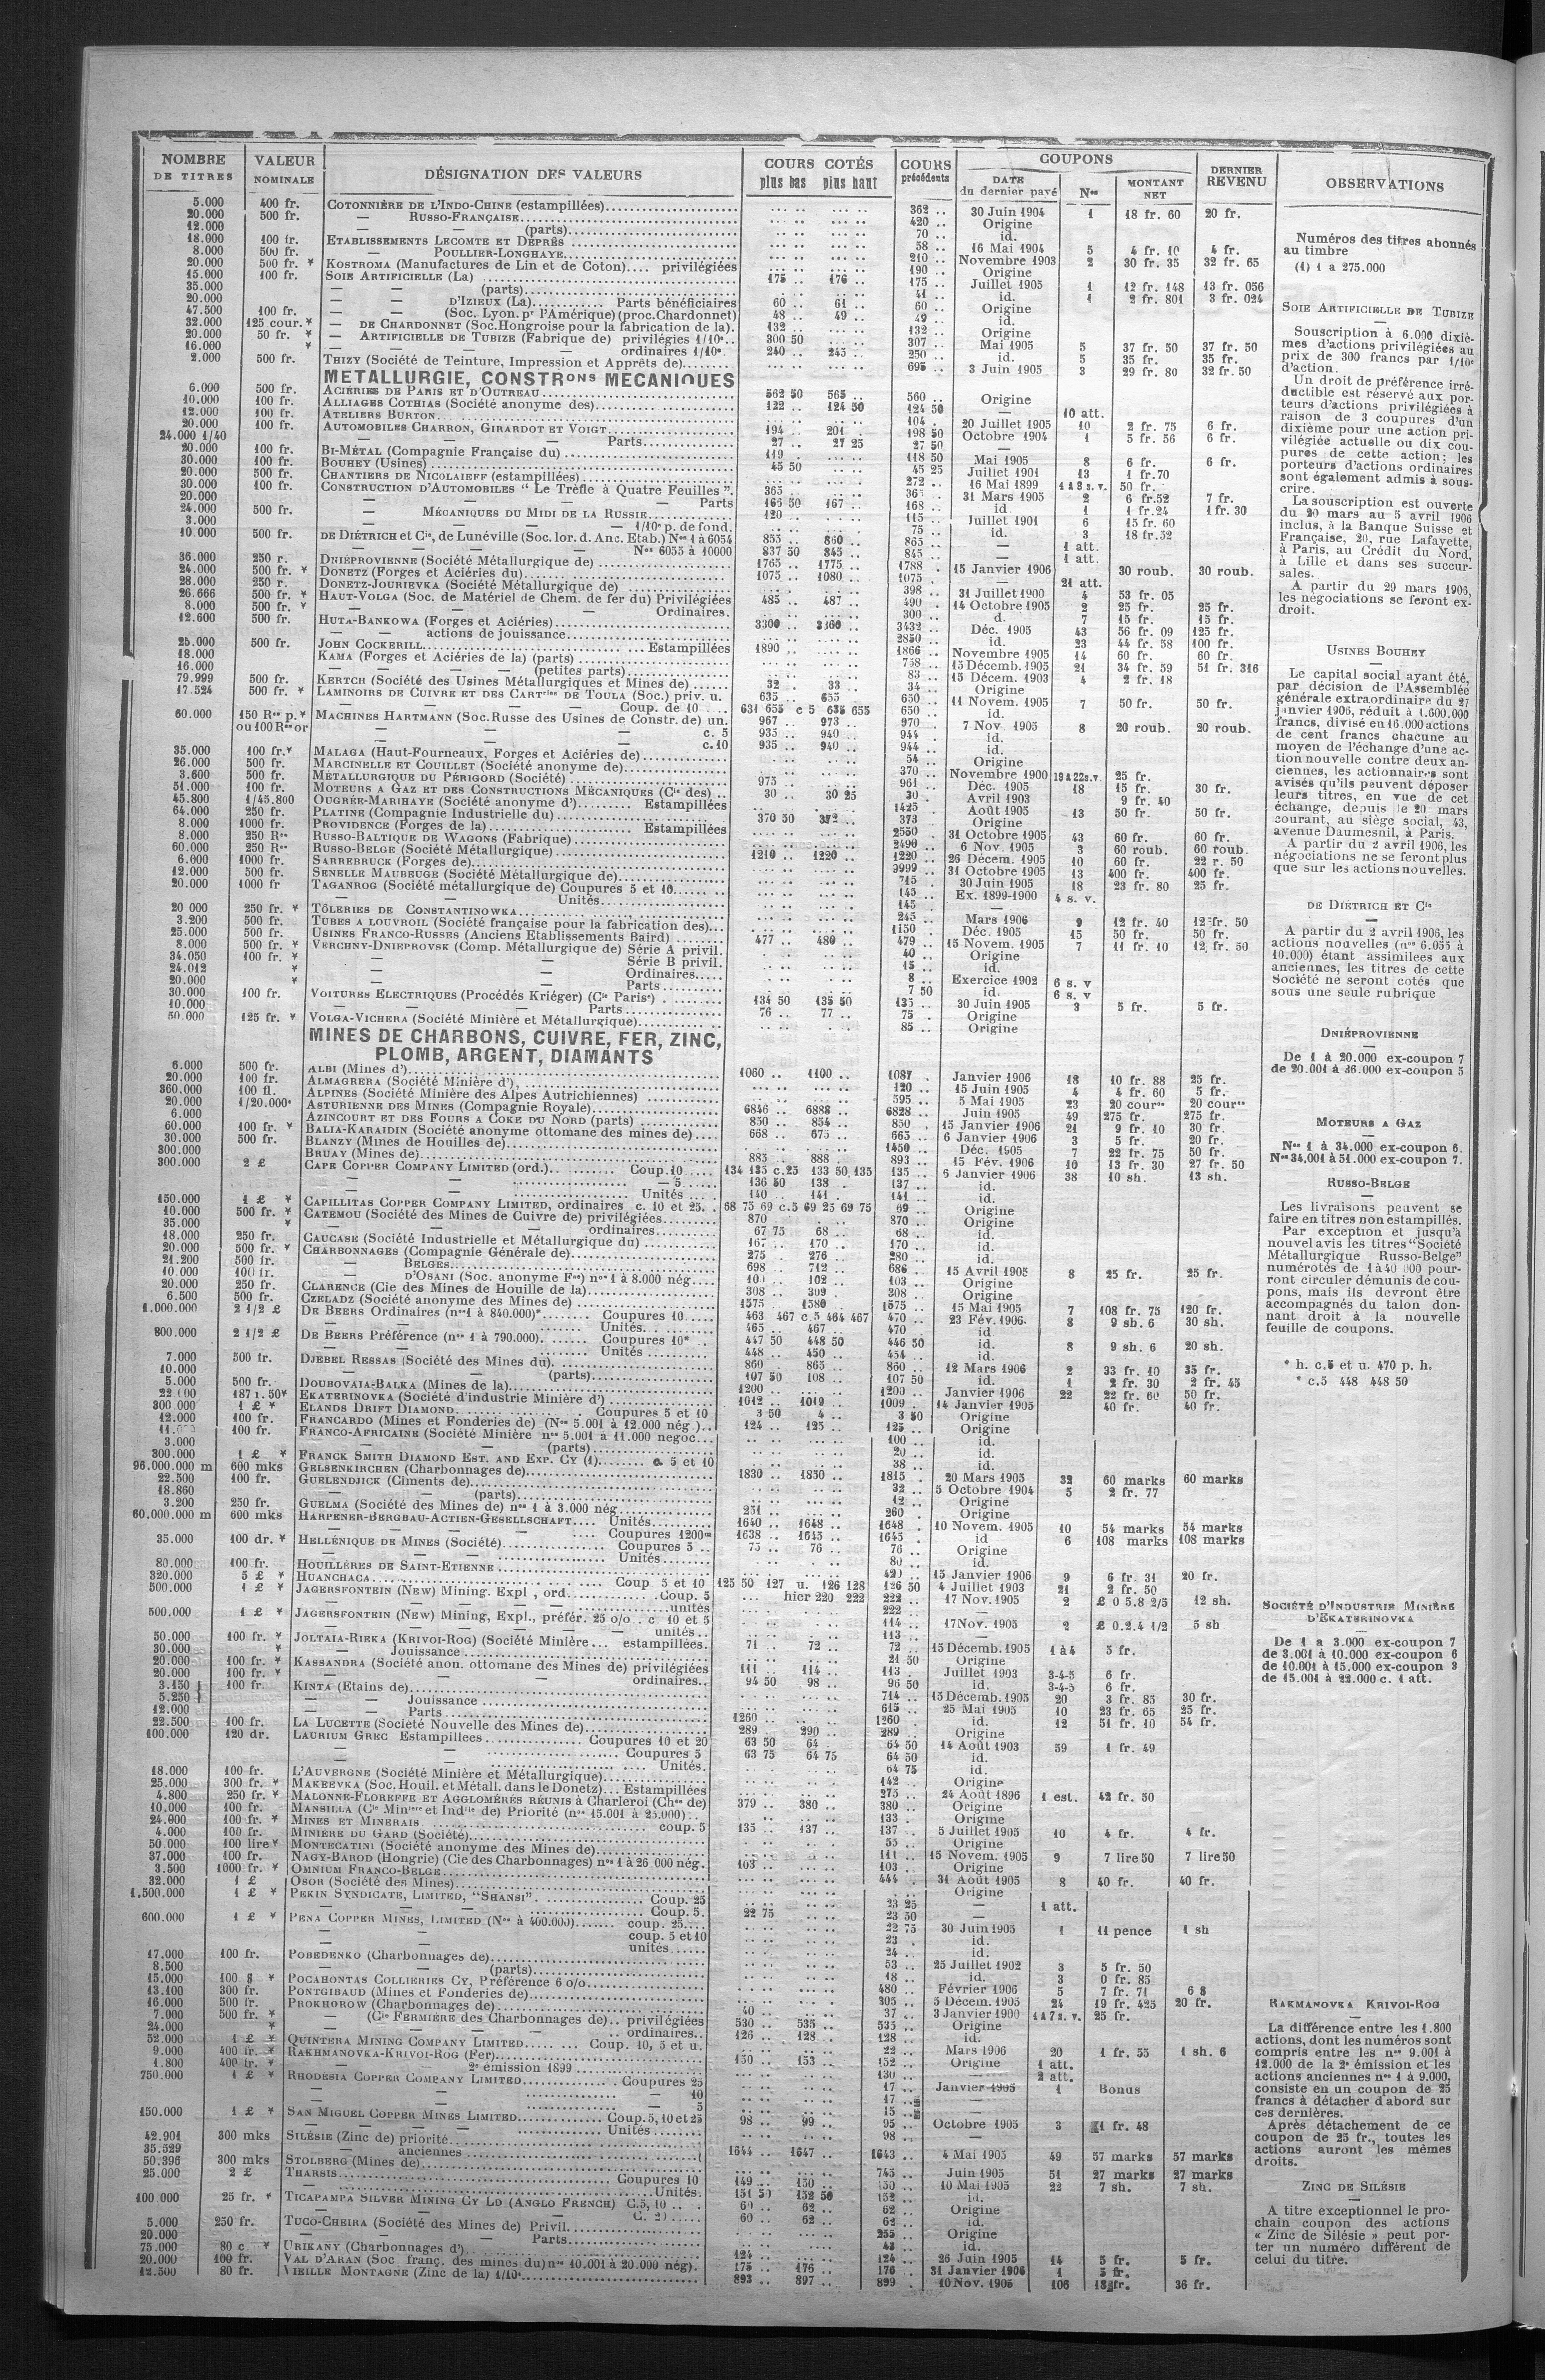 NOMBRE DE TITRES | VALEUR NOMINALE | DÉSIGNATION DES VALEURS | COURS COTÉS plus bas plus haut | COURS précédents | COUPONS DATE du dernier payé | Nos | MONTANT NET | DERNIER REVENU | OBSERVATIONS
5.000 400 fr. COTONNIÈRE DE L'INDO-CHINE (estampillées) 362 .. 30 Juin 1904 1 18 fr. 60 20 fr.
20.000 500 fr. — RUSSO-FRANÇAISE 420 .. Origine
12.000 — — (parts) 70 .. id.
18.000 100 fr. ETABLISSEMENTS LECOMTE ET DEPRÊS 58 .. 16 Mai 1904 5 4 fr. 10 4 fr.
8.000 500 fr. — POULLIER-LONGHAYE 210 .. Novembre 1903 2 30 fr. 35 32 fr. 65
20.000 500 fr. * KOSTROMA (Manufactures de Lin et de Coton).... privilégiées 190 .. Origine
15.000 100 fr. SOIE ARTIFICIELLE (La) 175 .. 176 .. 175 .. Juillet 1905 1 12 fr. 148 13 fr. 056
35.000 — — (parts) 41 .. id. 1 2 fr. 801 3 fr. 024
20.000 — — D'IZIEUX (La) Parts bénéficiaires 60 .. 61 .. 60 .. Origine
47.500 100 fr. — — (Soc. Lyon. pr l'Amérique) (proc. Chardonnet) 48 .. 49 .. 49 .. id.
32.000 125 cour. * — DE CHARDONNET (Soc. Hongroise pour la fabrication de la). 132 .. 132 .. Origine
20.000 50 fr. * — ARTIFICIELLE DE TUBIZE (Fabrique de) privilégies 1/10e.. 300 50 307 .. Mai 1905 5 37 fr. 50 37 fr. 50
16.000 * — — — ordinaires 1/10e. 240 .. 245 .. 250 .. id. 5 35 fr. 35 fr.
2.000 500 fr. THIZY (Société de Teinture, Impression et Apprêts de) 695 .. 3 Juin 1905 3 29 fr. 80 32 fr. 50
METALLURGIE, CONSTRons MECANIQUES
6.000 500 fr. ACIÉRIES DE PARIS ET D'OUTREAU 562 50 565 .. 560 .. Origine
10.000 100 fr. ALLIAGES COTHIAS (Société anonyme des) 122 .. 124 50 124 50 — 10 att.
12.000 100 fr. ATELIERS BURTON 104 . 20 Juillet 1905 10 2 fr. 75 6 fr.
20.000 100 fr. AUTOMOBILES CHARRON, GIRARDOT ET VOIGT 194 .. 201 . 198 50 Octobre 1904 1 5 fr. 56 6 fr.
24.000 1/40 — — Parts 27 .. 27 25 27 50 —
20.000 100 fr. BI-MÉTAL (Compagnie Française du) 119 . 118 50 Mai 1905 8 6 fr. 6 fr.
30.000 100 fr. BOUHEY (Usines) 45 50 45 25 Juillet 1901 13 1 fr.70
20.000 500 fr. CHANTIERS DE NICOLAIEFF (estampillées) 272 .. 16 Mai 1899 1 à 8 s. v. 50 fr.
30.000 100 fr. CONSTRUCTION D'AUTOMOBILES "Le Trèfle à Quatre Feuilles". 365 31 Mars 1905 2 6 fr.52 7 fr.
20.000 — — — Parts 166 50 167 .. 168 .. id 1 1 fr.24 1 fr. 30
24.000 500 fr. — MÉCANIQUES DU MIDI DE LA RUSSIE 120 .. 115 .. Juillet 1901 6 15 fr. 60
3.000 — — — 1/10e p. de fond. 75 .. id. 3 18 fr.52
10.000 500 fr. DE DIÉTRICH et Cie, de Lunéville (Soc. lor. d. Anc. Etab.) Nos 1 à 6054 855 .. 860 .. 865 .. — 1 att.
— — — Nos 6055 à 10000 837 50 845 .. 845 .. — 1 att.
36.000 250 r. DNIÉPROVIENNE (Société Métallurgique de) 1765 .. 1775 .. 1788 . 15 Janvier 1906 30 roub. 30 roub.
24.000 500 fr. * DONETZ (Forges et Aciéries du) 1075 .. 1080 .. 1075 . — 21 att.
28.000 250 r. DONETZ-JOURIEVKA (Société Métallurgique de) 398 .. 31 Juillet 1900 4 53 fr. 05
26.666 500 fr. * HAUT-VOLGA (Soc. de Matériel de Chem. de fer du) Privilégiées 485 .. 487 .. 490 . 14 Octobre 1905 2 25 fr. 25 fr.
8.000 500 fr. * — — — Ordinaires. 300 .. d. 7 15 fr. 15 fr.
12.600 500 fr. HUTA-BANKOWA (Forges et Aciéries) 3300 .. 3360 .. 3432 .. Déc. 1905 43 56 fr. 09 125 fr.
— — actions de jouissance 2850 .. id. 23 44 fr. 58 100 fr.
25.000 500 fr. JOHN COCKERILL Estampillées 1890 .. 1866 .. Novembre 1905 14 60 fr. 60 fr.
18.000 KAMA (Forges et Aciéries de la) (parts) 758 .. 15 Décemb. 1905 21 34 fr. 59 51 fr. 316
16.000 — — (petites parts) 83 .. 15 Décem. 1903 4 2 fr. 18
79.999 500 fr. KERTCH (Société des Usines Métallurgiques et Mines de) 32 . 33 . 34 .. Origine
17.524 500 fr. * LAMINOIRS DE CUIVRE ET DES CARTries DE TOULA (Soc.) priv. u. 635 .. 655 .. 650 .. 11 Novem. 1905 7 50 fr. 50 fr.
— — — Coup. de 10 631 655 c 5 635 655 650 .. id.
60.000 150 Res p. * MACHINES HARTMANN (Soc. Russe des Usines de Constr. de) un. 967 .. 973 .. 970 .. 7 Nov 1905 8 20 roub. 20 roub.
ou 100 R es or — — — c. 5 935 .. 940 .. 944 . id.
— — — c. 10 935 .. 940 .. 944 .. id.
35.000 100 fr. * MALAGA (Haut-Fourneaux, Forges et Aciéries de) 54 .. Origine
26.000 500 fr. MARCINELLE ET COUILLET (Société anonyme de) 370 .. Novembre 1900 19 à 22 s.v. 25 fr.
3.600 500 fr. MÉTALLURGIQUE DU PÉRIGORD (Société) 975 .. 961 .. Déc. 1905 18 15 fr. 30 fr.
51.000 100 fr. MOTEURS A GAZ ET DES CONSTRUCTIONS MÉCANIQUES (Cie des) .. 30 .. 30 25 30 . Avril 1903 9 fr. 40
45.800 1/45.800 OUGRÉE-MARIHAYE (Société anonyme d') Estampillées 1425 Août 1905 13 50 fr. 50 fr.
64.000 250 fr. PLATINE (Compagnie Industrielle du) 370 50 372 .. 373 Origine
8.000 1000 fr. PROVIDENCE (Forges de la) Estampillées 2550 . 31 Octobre 1905 43 60 fr. 60 fr.
8.000 250 Res RUSSO-BALTIQUE DE WAGONS (Fabrique) 2490 .. 6 Nov. 1905 3 60 roub. 60 roub.
60.000 250 Res RUSSO-BELGE (Société Métallurgique) 1210 .. 1220 .. 1220 .. 26 Décem. 1905 10 60 fr. 22 r. 50
6.000 1000 fr. SARREBRUCK (Forges de) 9999 .. 31 Octobre 1905 13 400 fr. 400 fr.
12.000 500 fr. SENELLE MAUBEUGE (Société Métallurgique de) 715 . 30 Juin 1905 18 23 fr. 80 25 fr.
20.000 1000 fr TAGANROG (Société métallurgique de) Coupures 5 et 10 145 .. Ex. 1899-1900 4 s. v.
— — Unités 145 .
20 000 250 fr. * TÔLERIES DE CONSTANTINOWKA 245 .. Mars 1906 9 12 fr. 40 12 fr. 50
3.200 500 fr. TUBES A LOUVROIL (Société française pour la fabrication des) 1150 . Déc. 1905 15 50 fr. 50 fr.
25.000 500 fr. USINES FRANCO-RUSSES (Anciens Etablissements Baird) 477 .. 480 .. 479 .. 15 Novem. 1905 7 11 fr. 10 12 fr. 50
8.000 500 fr. * VERCHNY-DNIEPROVSK (Comp. Métallurgique de) Série A privil. 40 .. Origine
34.050 100 fr. * — — Série B privil. 15 .. id.
24.012 * — — Ordinaires 8 .. Exercice 1902 6 s. v
20.000 * — — Parts 7 50 id. 6 s. v
30.000 100 fr. VOITURES ELECTRIQUES (Procédés Kriéger) (Cie Parise) 134 50 135 50 135 . 30 Juin 1905 3 5 fr. 5 fr.
10.000 — — Parts 76 .. 77 .. 75 . Origine
50.000 125 fr. * VOLGA-VICHERA (Société Minière et Métallurgique) 85 .. Origine
MINES DE CHARBONS, CUIVRE, FER, ZINC,
PLOMB, ARGENT, DIAMANTS
6.000 500 fr. ALBI (Mines d') 1060 .. 1100 .. 1087 . Janvier 1906 18 10 fr. 88 25 fr.
20.000 100 fr. ALMAGRERA (Société Minière d') 120 .. 15 Juin 1905 4 4 fr. 60 5 fr.
360.000 100 fl. ALPINES (Société Minière des Alpes Autrichiennes) 595 .. 5 Mai 1905 23 20 cour. 20 cour.
20.000 1/20.000e ASTURIENNE DES MINES (Compagnie Royale) 6846 .. 6888 .. 6828 .. Juin 1905 49 275 fr. 275 fr.
6.000 AZINCOURT ET DES FOURS A COKE DU NORD (parts) 850 .. 854 .. 850 . 15 Janvier 1906 21 9 fr. 10 30 fr.
60.000 100 fr. * BALIA-KARAIDIN (Société anonyme ottomane des mines de) 668 .. 675 .. 665 .. 6 Janvier 1906 3 5 fr. 20 fr.
30.000 500 fr. BLANZY (Mines de Houilles de) 1450 .. Déc. 1905 7 22 fr. 75 50 fr.
300.000 BRUAY (Mines de) 885 .. 888 . 893 .. 15 Fév. 1906 10 13 fr. 30 27 fr. 50
300.000 2 £ CAPE COPPER COMPANY LIMITED (ord.) Coup. 10 134 135 c.25 133 50 135 135 .. 6 Janvier 1906 38 10 sh. 13 sh.
— — — 5 136 50 138 . 137 .. id.
— — Unités 140 .. 141 . 141 .. id.
150.000 1 £ * CAPILLITAS COPPER COMPANY LIMITED, ordinaires c. 10 et 25. 68 75 69 c.5 69 25 69 75 69 .. Origine
10.000 500 fr. * CATEMOU (Société des Mines de Cuivre de) privilégiées 870 . 870 .. Origine
35.000 * — — ordinaires 67 75 68 .. 68 .. id.
18.000 250 fr. CAUCASE (Société Industrielle et Métallurgique du) 167 .. 170 .. 170 .. id.
20.000 500 fr. * CHARBONNAGES (Compagnie Générale de) 275 276 .. 280 .. id.
21.200 500 fr. — BELGES 698 .. 712 .. 686 .. 15 Avril 1905 8 25 fr. 25 fr.
10.000 100 fr. — D'OSANI (Soc. anonyme Fse) nos 1 à 8.000 nég 100 .. 102 .. 103 .. Origine
20.000 250 fr. CLARENCE (Cie des Mines de Houille de la) 308 .. 309 . 308 .. Origine
6.500 500 fr. CZELADZ (Société anonyme des Mines de) 1575 .. 1580 . 1575 .. 15 Mai 1905 7 108 fr. 75 120 fr.
1.000.000 2 1/2 £ DE BEERS Ordinaires (nos 1 à 840.000)* Coupures 10 463 467 c.5 464 467 470 .. 23 Fév. 1906 8 9 sh. 6 30 sh.
— Unités 465 .. 467 .. 470 . id.
800.000 2 1/2 £ DE BEERS Préférence (nos 1 à 790.000) Coupures 10* 447 50 448 50 446 50 id. 8 9 sh. 6 20 sh.
— Unités 448 .. 450 .. 454 .. id.
7.000 500 fr. DJEBEL RESSAS (Société des Mines du) 860 . 865 .. 860 .. 12 Mars 1906 2 33 fr. 10 35 fr.
10.000 — (parts) 107 50 108 .. 107 50 id. 1 2 fr. 30 2 fr. 45
5.000 500 fr. DOUBOVAIA-BALKA (Mines de la) 1200 .. 1200 .. Janvier 1906 22 22 fr. 60 50 fr.
22 000 187 r. 50 * EKATERINOVKA (Société d'industrie Minière d') 1012 .. 1019 .. 1009 . 14 Janvier 1905 40 fr. 40 fr.
300 000 1 £ * ELANDS DRIFT DIAMOND Coupures 5 et 10 3 50 4 .. 3 50 Origine
12.000 100 fr. FRANCARDO (Mines et Fonderies de) (Nos 5.001 à 12.000 nég) 124 .. 125 .. 125 .. Origine
100 fr. FRANCO-AFRICAINE (Société Minière nos 5.001 à 11.000 negoc 100 .. id.
3.000 — — (parts) 20 .. id.
300.000 1 £ * FRANCK SMITH DIAMOND EST. AND EXP. CY (1) c. 5 et 10 38 .. id.
96.000.000 m 600 mks GELSENKIRCHEN (Charbonnages de) 1830 .. 1830 .. 1815 . 20 Mars 1905 32 60 marks 60 marks
22.500 100 fr. GUELENDJICK (Ciments de) 32 .. 5 Octobre 1904 5 2 fr. 77
18.860 — — (parts) 12 .. Origine
3.200 250 fr. GUELMA (Société des Mines de) nos 1 à 3.000 nég 251 .. 260 . Origine
60.000.000 m 600 mks HARPENER-BERGBAU-ACTIEN-GESELLSCHAFT Unités 1640 .. 1648 .. 1648 . 10 Novem. 1905 10 54 marks 54 marks
— — — Coupures 1200m 1638 .. 1645 .. 1645 . id 6 108 marks 108 marks
35.000 100 dr. * HELLÉNIQUE DE MINES (Société) Coupures 5 75 .. 76 .. 76 .. Origine
— — Unités 80 .. id.
80.000 100 fr. HOUILLÈRES DE SAINT-ETIENNE 420 .. 15 Janvier 1906 9 6 fr. 31 20 fr.
320.000 5 £ * HUANCHACA Coup 5 et 10 125 50 127 u. 126 128 126 50 4 Juillet 1903 21 2 fr. 50
500.000 1 £ * JAGERSFONTEIN (NEW) Mining. Expl, ord Coup. 5 hier 220 222 222 .. 17 Nov. 1905 2 £ 0 5.8 2/5 12 sh.
— — unités 222 .. —
500.000 1 £ * JAGERSFONTEIN (NEW) Mining, Expl., préfér. 25 o/o c 10 et 5 114 .. 17 Nov. 1905 2 £ 0.2.4 1/2 5 sh
— — unités 113 .. —
50.000 100 fr. * JOLTAIA-RIEKA (KRIVOI-ROG) (Société Minière estampillées. 71 .. 72 .. 72 .. 15 Décemb. 1905 1 à 4 5 fr.
30.000 * — Jouissance 21 50 Origine
20.000 100 fr. * KASSANDRA (Société anon. ottomane des Mines de) privilégiées 111 .. 114 .. 113 . Juillet 1903 3-4-5 6 fr.
20.000 100 fr. * — — ordinaires 94 50 98 .. 96 50 id. 3-4-5 6 fr.
3.150 100 fr. KINTA (Etains de) 714 .. 15 Décemb. 1905 20 3 fr. 85 30 fr.
5.250 — — Jouissance 615 .. 25 Mai 1905 10 23 fr. 65 25 fr.
12.000 — — Parts 1260 .. 1260 . id. 12 51 fr. 10 54 fr.
22.500 100 fr. LA LUCETTE (Société Nouvelle des Mines de) 289 .. 290 .. 289 .. Origine
100.000 120 dr. LAURIUM GREC Estampillees Coupures 10 et 20 63 50 64 . 64 50 14 Août 1903 59 1 fr. 49
— — Coupures 5 63 75 64 75 64 50 id.
— — Unités. 64 75 id.
18.000 100 fr. L'AUVERGNE (Société Minière et Métallurgique) 142 .. Origine
25.000 300 fr. * MAKEEVKA (Soc. Houil. et Métall. dans le Donetz) Estampillées 275 .. 24 Août 1896 1 est. 42 fr. 50
4.800 250 fr. * MALONNE-FLOREFFE ET AGGLOMÉRÉS RÉUNIS à Charleroi (Chge de) 379 .. 380 .. 380 .. Origine
10.000 100 fr. MANSILLA (Cie Minière et Indlle de) Priorité (nos 15.001 à 25.000) 133 . Origine
24.000 100 fr. * MINES ET MINERAIS coup. 5 135 .. 137 .. 137 . 5 Juillet 1905 10 4 fr. 4 fr.
4.000 100 fr. MINIÈRE DU GARD (Société) 55 .. Origine
50.000 100 lire * MONTECATINI (Société anonyme des Mines de) 111 .. 15 Novem. 1905 9 7 lire 50 7 lire 50
37.000 100 fr. NAGY-BAROD (Hongrie) (Cie des Charbonnages) nos 1 à 26 000 nég. 103 .. 103 .. Origine
3.500 1000 fr. * OMNIUM FRANCO-BELGE 444 . 31 Août 1905 8 40 fr. 40 fr.
32.000 1 £ OSOR (Société des Mines) Origine
1.500.000 1 £ * PEKIN SYNDICATE, LIMITED, "SHANSI" Coup. 25 23 25 — 1 att.
— — Coup. 5. 22 75 23 50 —
600.000 1 £ * PENA COPPER MINES, LIMITED (Nos à 400.000) coup. 25 22 75 30 Juin 1905 1 11 pence 1 sh
— coup. 5 et 10 23 . id.
— unités 24 .. id.
17.000 100 fr. POBEDENKO (Charbonnages de) 53 .. 25 Juillet 1902 3 5 fr. 50
8.500 — — (parts) 18 .. id. 3 0 fr. 85
15.000 100 $ * POCAHONTAS COLLIERIES CY, Préférence 6 o/o 480 .. Février 1906 5 7 fr. 71 6 $
13.100 300 fr. PONTGIBAUD (Mines et Fonderies de) 305 .. 5 Décem. 1905 24 19 fr. 425 20 fr.
16.000 500 fr. PROKHOROW (Charbonnages de) 40 .. 37 .. 3 Janvier 1900 4 à 7 s. v. 25 fr.
7.000 500 fr. * — (Cie FERMIERE des Charbonnages de) privilégiées 530 .. 535 .. 535 .. Origine
24.000 * — — ordinaires 126 .. 128 .. 128 .. id.
52.000 1 £ * QUINTERA MINING COMPANY LIMITED Coup. 10, 5 et u. 22 .. Mars 1906 20 1 fr. 55 1 sh. 6
9.000 400 fr. * RAKHMANOVKA-KRIVOI-ROG (Fer) 150 .. 153 .. 152 .. Origine 1 att.
1.800 400 fr. * — — 2e émission 1899 130 .. — 2 att.
750.000 1 £ * RHODESIA COPPER COMPANY LIMITED Coupures 25 17 .. Janvier 1905 1 Bonus
— — 10 17 .. —
— — 5 15 .. —
150.000 1 £ * SAN MIGUEL COPPER MINES LIMITED Coup. 5, 10 et 25 98 .. 99 .. 95 .. Octobre 1905 3 1 fr. 48
— — Unités 98 .. —
42.901 300 mks SILÉSIE (Zinc de) priorité 1644 .. 1647 .. 1643 .. 4 Mai 1905 49 57 marks 57 marks
35.529 — anciennes
50.396 300 mks STOLBERG (Mines de) 745 .. Juin 1905 51 27 marks 27 marks
25.000 2 £ THARSIS Coupures 10 149 .. 150 .. 150 .. 10 Mai 1905 22 7 sh. 7 sh.
— Unités. 151 50 152 50 152 .. id.
100 000 25 fr. * TICAPAMPA SILVER MINING CY LD (ANGLO FRENCH) C.5, 10 60 .. 62 .. 62 .. Origine
— — 60 .. 62 .. 62 .. id.
5.000 250 fr. TUCO-CHEIRA (Société des Mines de) Privil. 255 .. Origine
20.000 — — Parts 42 .. id.
75.000 80 c * URIKANY (Charbonnages d') 124 .. 124 .. 26 Juin 1905 14 5 fr. 5 fr.
20.000 100 fr. VAL D'ARAN (Soc franç. des mines du) nos 10.001 à 20.000 nég). 175 .. 176 .. 176 . 31 Janvier 1906 1 5 fr.
12.500 80 fr. VIEILLE MONTAGNE (Zinc de la) 1/10e 893 .. 897 .. 899 . 10 Nov. 1905 106 18 fr. 36 fr.
Numéros des titres abonnés
au timbre
(1) 1 a 275.000
SOIE ARTIFICIELLE DE TUBIZE
Souscription à 6.000 dixiè-
mes d'actions privilégiées au
prix de 300 francs par 1/10e
d'action.
Un droit de préférence irré-
ductible est réservé aux por-
teurs d'actions privilégiées à
raison de 3 coupures d'un
dixième pour une action pri-
vilégiée actuelle ou dix cou-
pures de cette action; les
porteurs d'actions ordinaires
sont également admis à sous-
crire.
La souscription est ouverte
du 20 mars au 5 avril 1906
inclus, à la Banque Suisse et
Française, 20, rue Lafayette,
à Paris, au Crédit du Nord,
à Lille et dans ses succur-
sales.
A partir du 29 mars 1906,
les négociations se feront ex-
droit.
USINES BOUHEY
Le capital social ayant été,
par décision de l'Assemblée
générale extraordinaire du 27
janvier 1905, réduit à 1.600.000
francs, divisé en 16.000 actions
de cent francs chacune au
moyen de l'échange d'une ac-
tion nouvelle contre deux an-
ciennes, les actionnaires sont
avisés qu'ils peuvent déposer
leurs titres, en vue de cet
échange, depuis le 20 mars
courant, au siège social, 43,
avenue Daumesnil, à Paris.
A partir du 2 avril 1906, les
négociations ne se feront plus
que sur les actions nouvelles.
DE DIETRICH ET Cie
A partir du 2 avril 1906, les
actions nouvelles (nos 6.055 à
10.000) étant assimilees aux
anciennes, les titres de cette
Société ne seront cotés que
sous une seule rubrique
DNIÉPROVIENNE
De 1 à 20.000 ex-coupon 7
de 20.001 à 36.000 ex-coupon 5
MOTEURS A GAZ
Nos 1 à 34.000 ex-coupon 6.
Nos 34.001 à 51.000 ex-coupon 7.
RUSSO-BELGE
Les livraisons peuvent se
faire en titres non estampillés.
Par exception et jusqu'à
nouvel avis les titres "Société
Métallurgique Russo-Belge"
numérotés de 1 à 40 000 pour-
ront circuler démunis de cou-
pons, mais ils devront être
accompagnés du talon don-
nant droit à la nouvelle
feuille de coupons.
* h. c.5 et u. 470 p. h.
* c.5 448 448 50
SOCIÉTÉ D'INDUSTRIE MINIÈRE
D'EKATERINOVKA
De 1 a 3.000 ex-coupon 7
de 3.001 à 10.000 ex-coupon 6
de 10.001 à 15.000 ex-coupon 3
de 15.001 à 22.000 c. 1 att.
RAKMANOVKA KRIVOI-ROG
La différence entre les 1.800
actions, dont les numéros sont
compris entre les nos 9.001 à
12.000 de la 2e émission et les
actions anciennes nos 1 à 9.000,
consiste en un coupon de 25
francs à détacher d'abord sur
ces dernières.
Après détachement de ce
coupon de 25 fr., toutes les
actions auront les mêmes
droits.
ZINC DE SILÉSIE
A titre exceptionnel le pro-
chain coupon des actions
« Zinc de Silésie » peut por-
ter un numéro différent de
celui du titre.